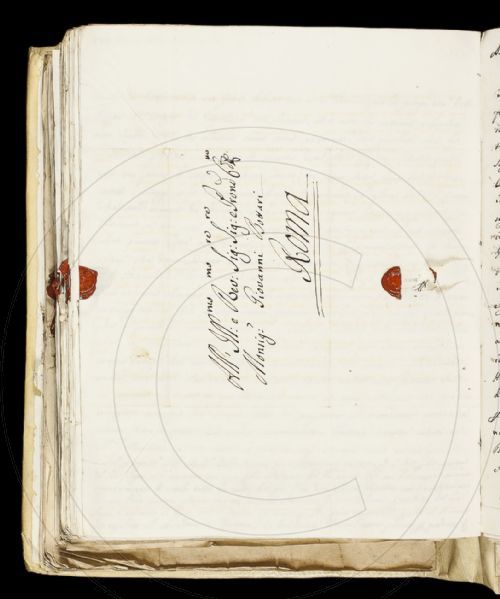 All' Ill: e Rev: Sig: Sig: e Pron̄ Col:
Monsig: Giovanni Bottari
Roma